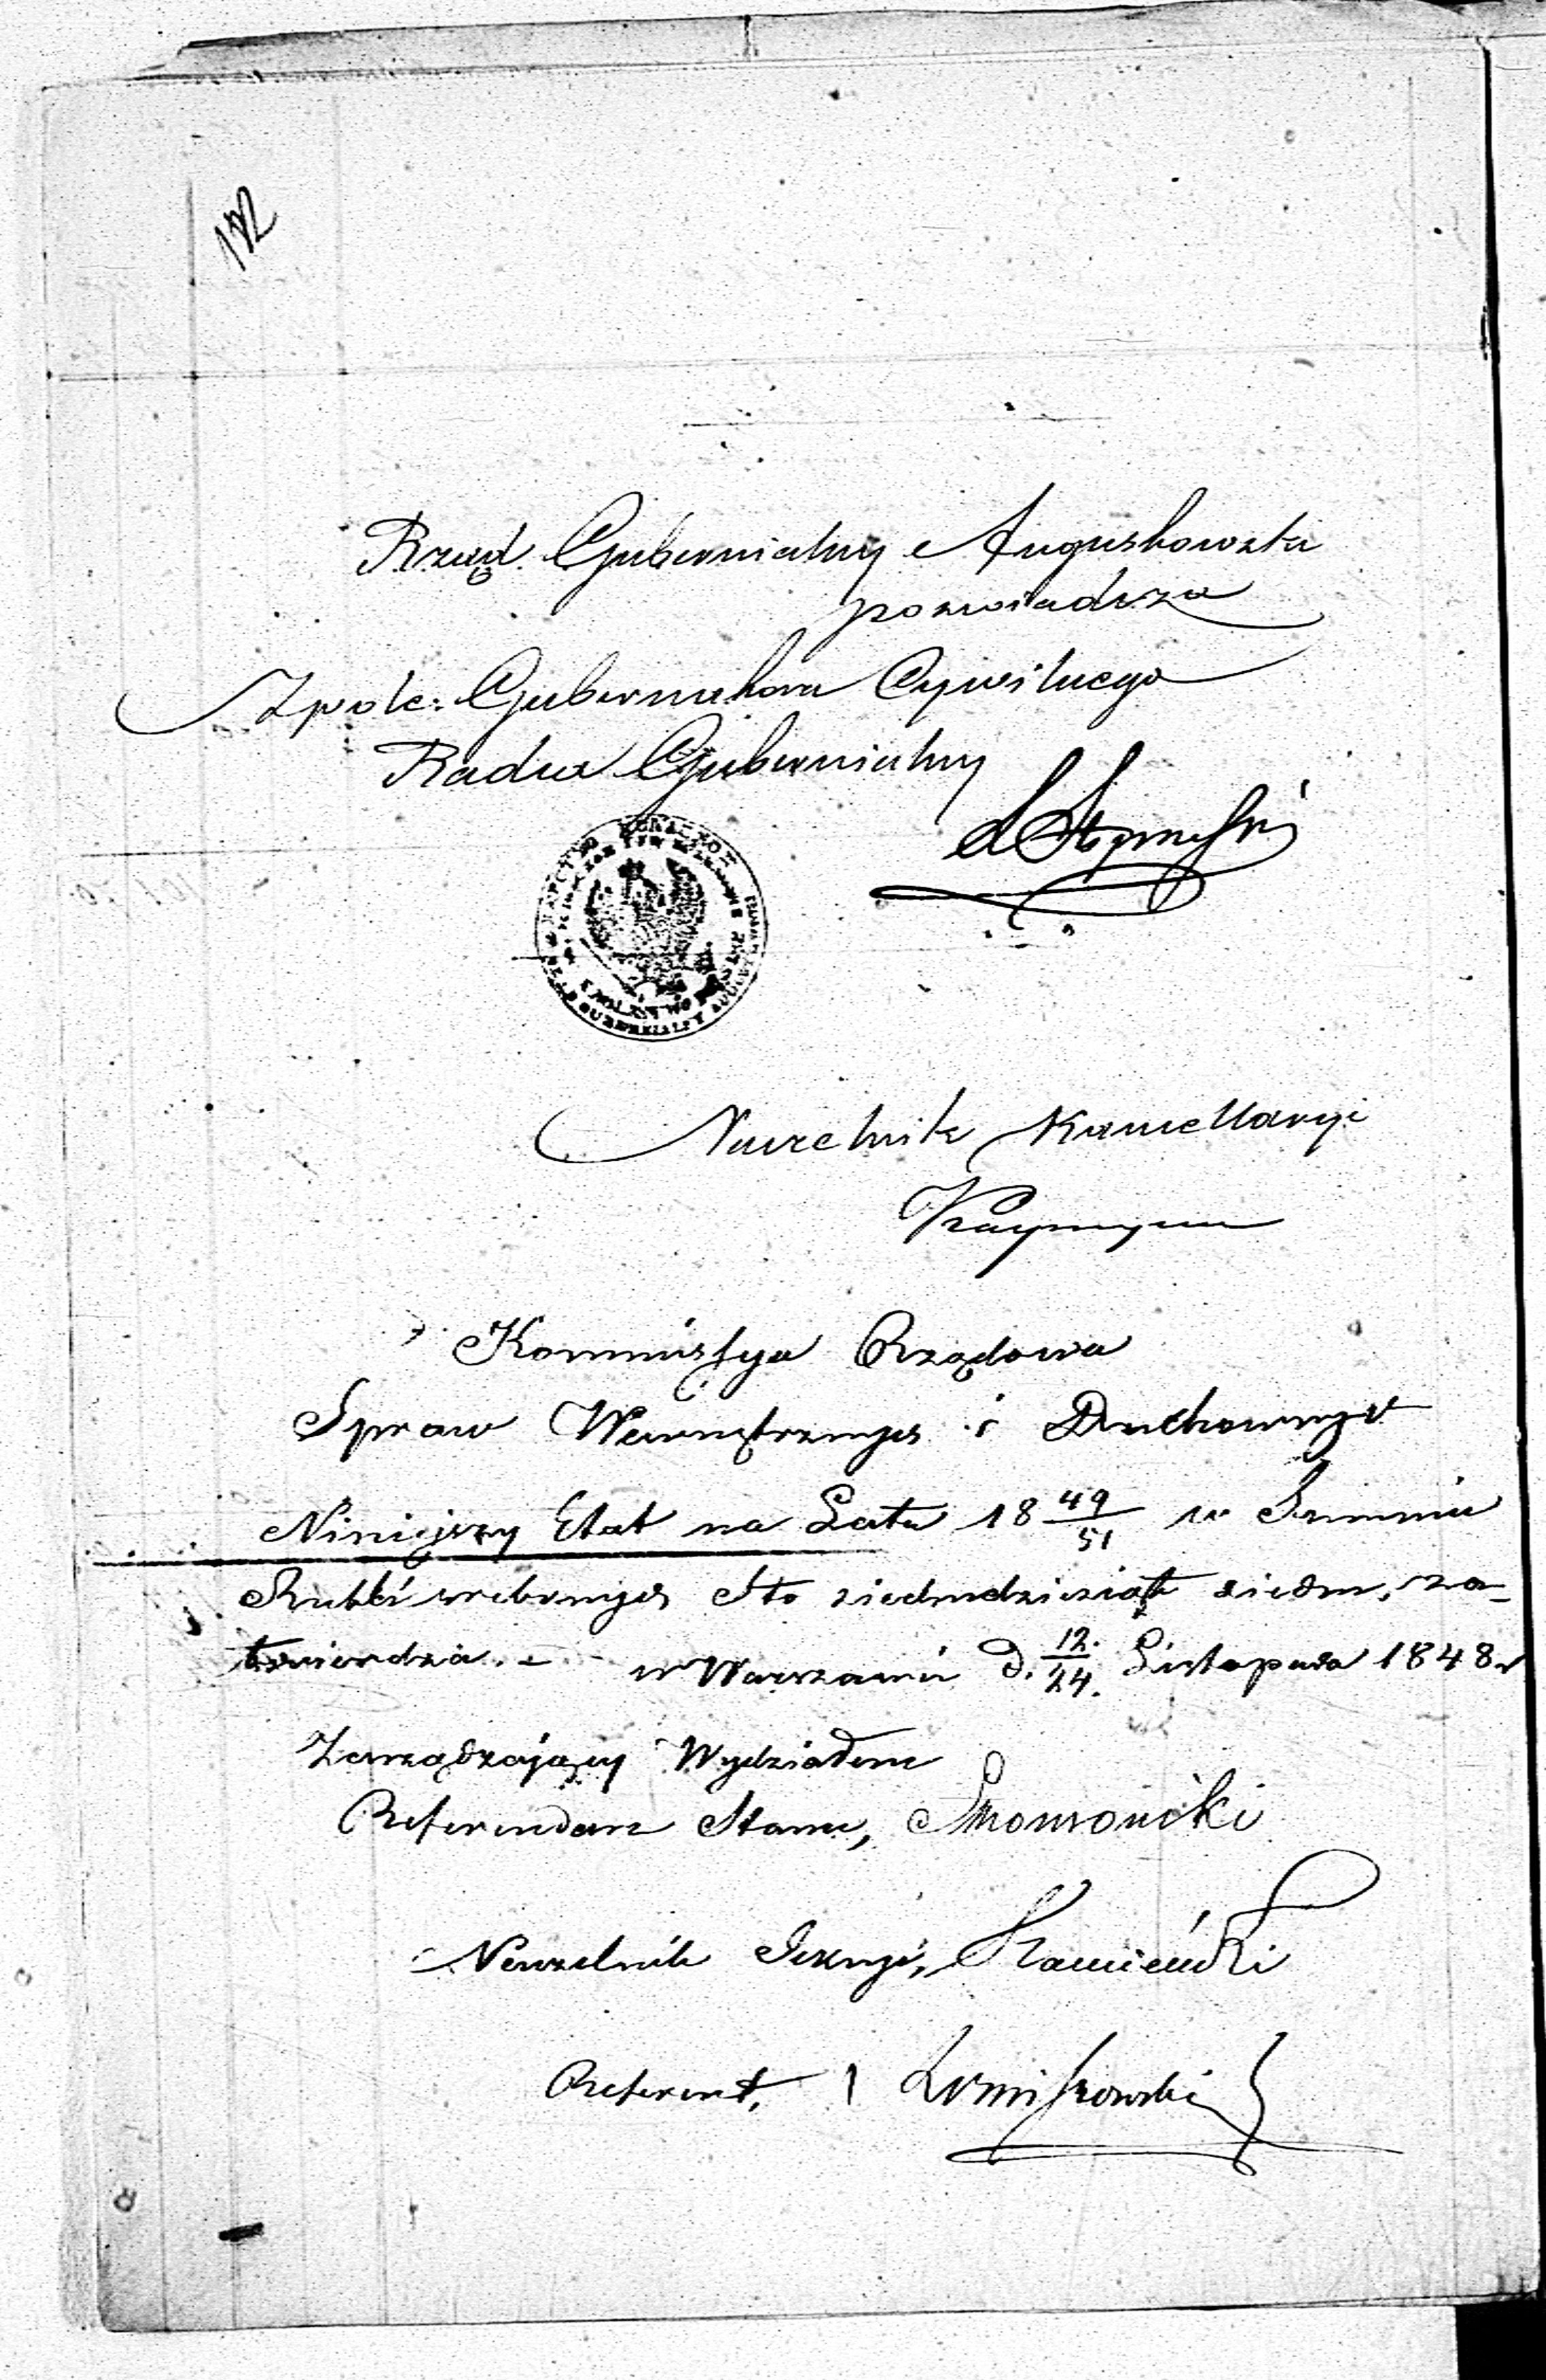 Rząd Gubernialny Augustowski
poświadcza
Z pole: Gubernatora Cywilnego
Radca Gubernialny
Naczelnik Kancellaryi
Kommissya Rządowa
Spraw Wewnętrznych i Duchownych
Niniejszy Etat na Lata 18 49/51 w Summie
Rubli srebrnych Sto siedmdziesiąt siedm, za-
twierdza. - w Warszawie d. 12./24. Listopada 1848 r
Zarządzający Wydziałem
Referendarz Stanu,
Naczelnik Sekcyi, Kamieński
Referent,